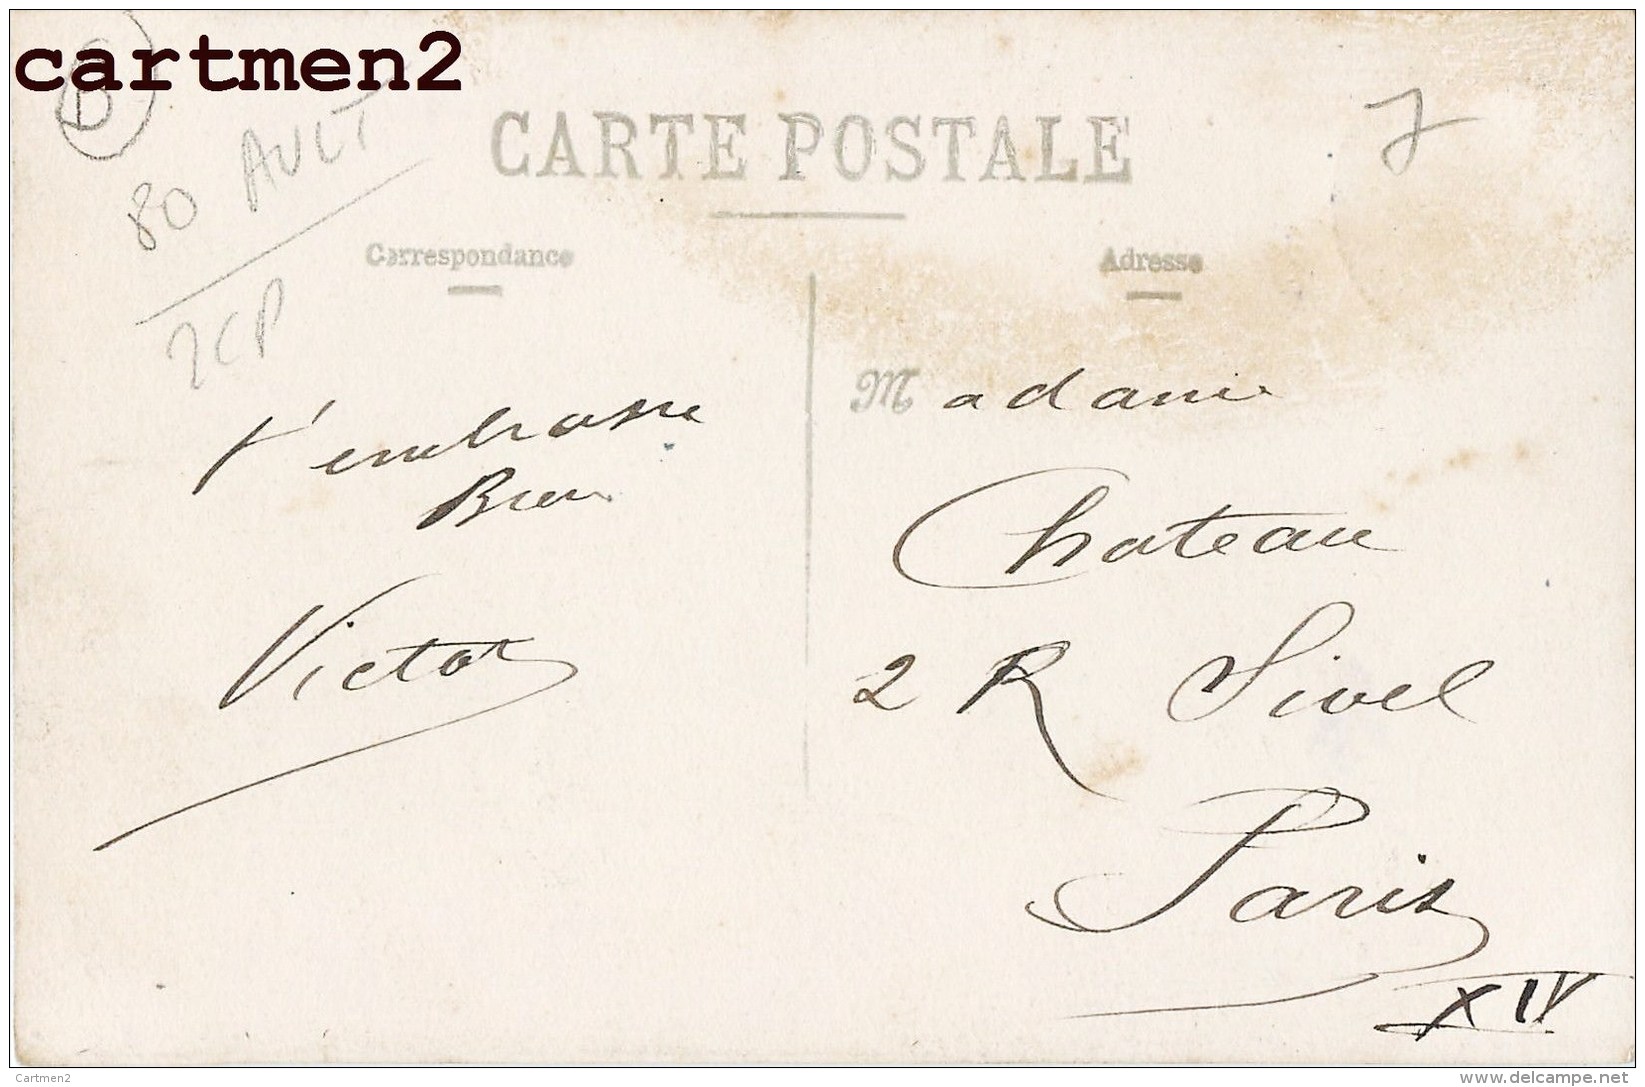 cartmen2
B
80 AULT
2CP
7
CARTE POSTALE
Correspondance
Adresse
t'embrasse
Bien
Victor
Madame
Chateau
2 R Sivel
Paris
XIV
Cartmen2
delcampe.net